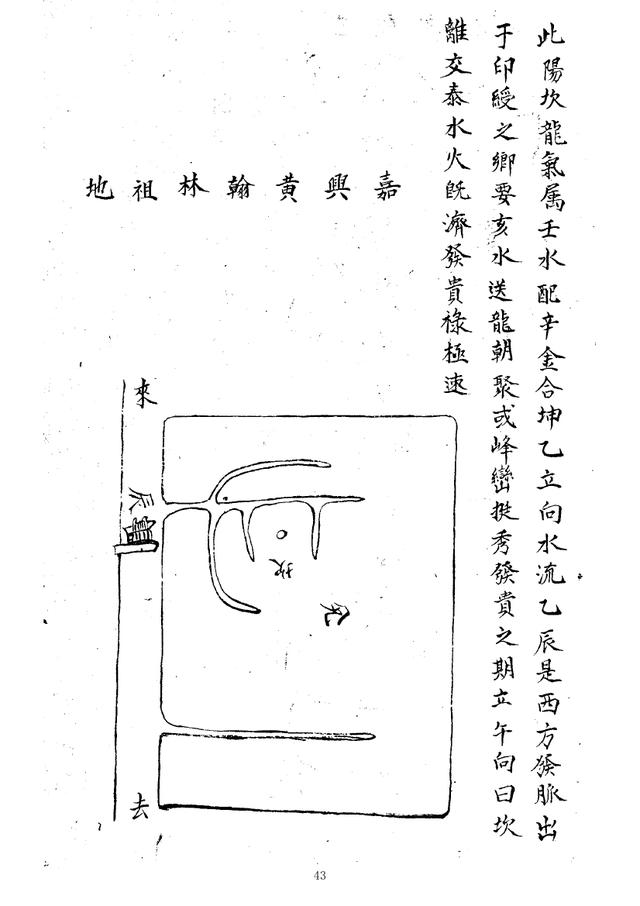 此陽坎龍氣属壬水配辛金合坤乙立向水流乙辰是西方發脈出
于印綬之鄉要亥水送龍朝聚或峰巒挺秀發貴之期立午向曰坎
離交泰水火旣濟發貴祿極速
嘉興黃翰林祖地
來
辰
坎
去
43